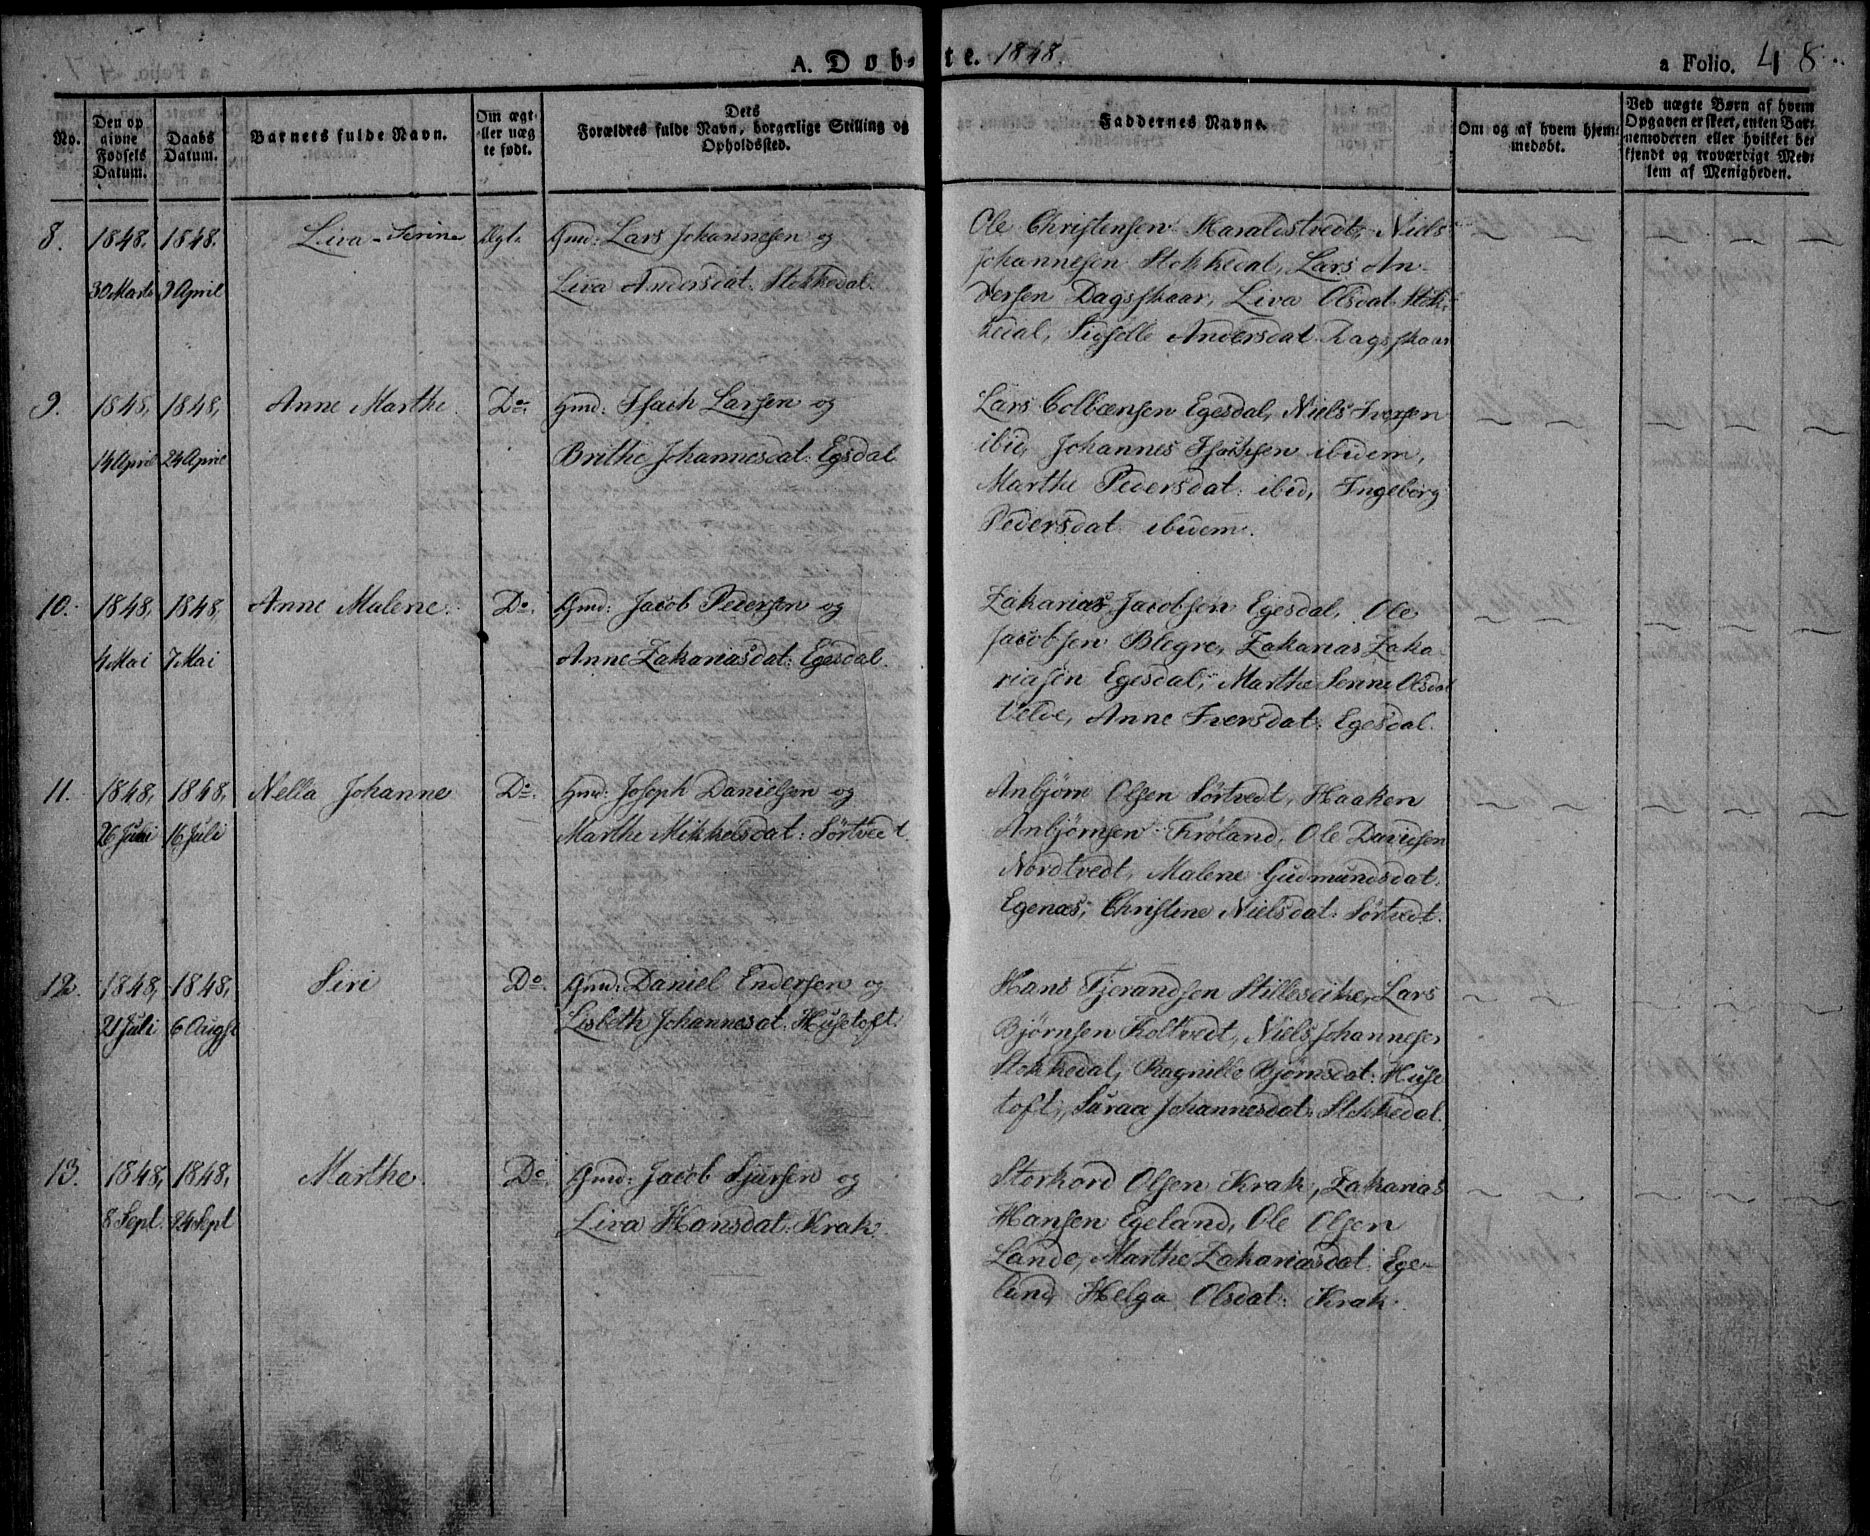 A. Døb-te. 1848. a Folio. 48
No.
Den op
givne
Fødsels
Datum.
Daabs
Datum.
Barnets fulde Navn.
Om ægt
eller uæg
te født.
Dets
Forældres fulde Navn, borgerlige Stilling og
Opholdssted.
Faddernes Navne.
Om og af hvem hjem-
medøbt.
Ved uægte Børn af hvem
Opgaven er skeet, enten Bar-
nemoderen eller hvilket be-
kjendt og troværdigt Med-
lem af Menigheden.
8. 1848. 1848. Liva Serine Ægt. Gmd: Lars Johannesen og
30 Marts 9 April Liva Andersdat: Stokkedal.
Ole Christensen Haraldstvedt, Niels
Johannesen Stokkedal, Lars An-
dersen Dagsskaar, Liva Olsdat: Stok-
kedal, Sidselle Andersdat: Dagsskaar
9. 1848, 1848, Anne Marthe. Do. Gmd: Isach Larsen og
14 April 24 April Brithe Johannesdat: Egsdal
Lars Colbænsen Egesdal, Niels Iversen
ibid, Johannes Isachsen ibidem,
Marthe Pedersdat: ibid, Ingeborg
Pedersdat: ibidem.
10. 1848, 1848, Anne Malene. Do. Gmd: Jacob Pedersen og
4 Mai 7 Mai Anne Zakariasdat: Egesdal.
Zakarias Jacobsen Egesdal, Ole
Jacobsen Blegre, Zakarias Zaka-
riasen Egesdal, Marthe Serine Olsdat
Velde, Anne Iversdat: Egesdal.
11. 1848, 1848, Nella Johanne Do. Gmd: Joseph Danielsen og
26 Juni 16 Juli Marthe Mikkelsdat: Sørtvedt
Anbjørn Olsen Sørtvedt, Haaken
Anbjørnsen Frøland, Ole Davidsen
Nordtvedt, Malene Gudmundsdat:
Egenæs, Christene Nielsdat: Sørtvedt.
12. 1848, 1848, Siri Do. Gmd: Daniel Endersen og
21 Juli 6 Augst Lisbeth Johannesdat: Husetoft
Hans Tjerandsen Stilleseike, Lars
Bjørnsen Holtvedt, Niels Johannesen
Stokkedal, Ragnille Bjørnsdat: Huse
toft, Saraa Johannesdat: Stokkedal.
13. 1848, 1848, Marthe. Do. Gmd: Jacob Sjursen og
8 Sept. 24 Sept Liva Hansdat: Krak.
Storkord Olsen Krak, Zakarias
Hansen Egeland, Ole Olsen
Lande, Marthe Zakariasdat: Ege-
land, Helga Olsdat: Krak.